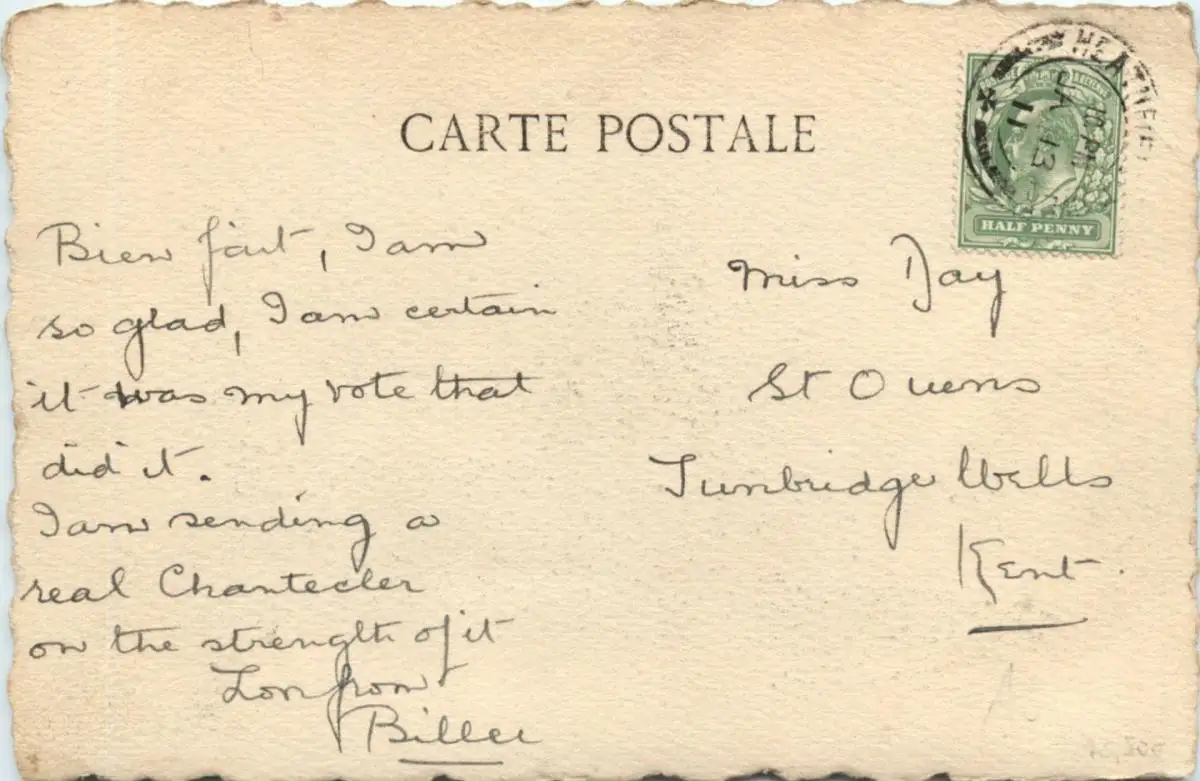 CARTE POSTALE
HEATHFIE
10 PM
JA 13
11
HALF PENNY
Bien fait, I am
so glad, I am certain
it was my vote that
did it.
I am sending a
real Chantecler
on the strength of it
from
Miss Day
St Owens
Tunbridge Wells
Kent.